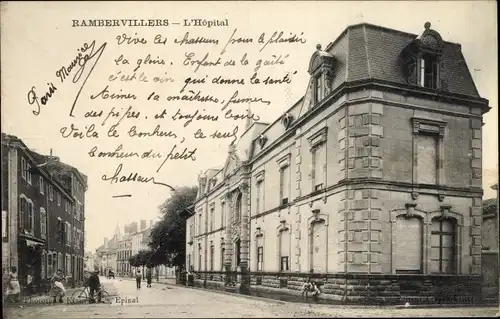 RAMBERVILLERS — L'Hôpital
Vive les chasseurs pour le plaisir
la gloire. Enfant de la gaité
c'est le vin qui donne la santé
Aimer sa maîtresse, fumer
des pipes. et toujours boire
Voila le bonheur, le seul
bonheur du petit
chasseur
Maurice
Epinal